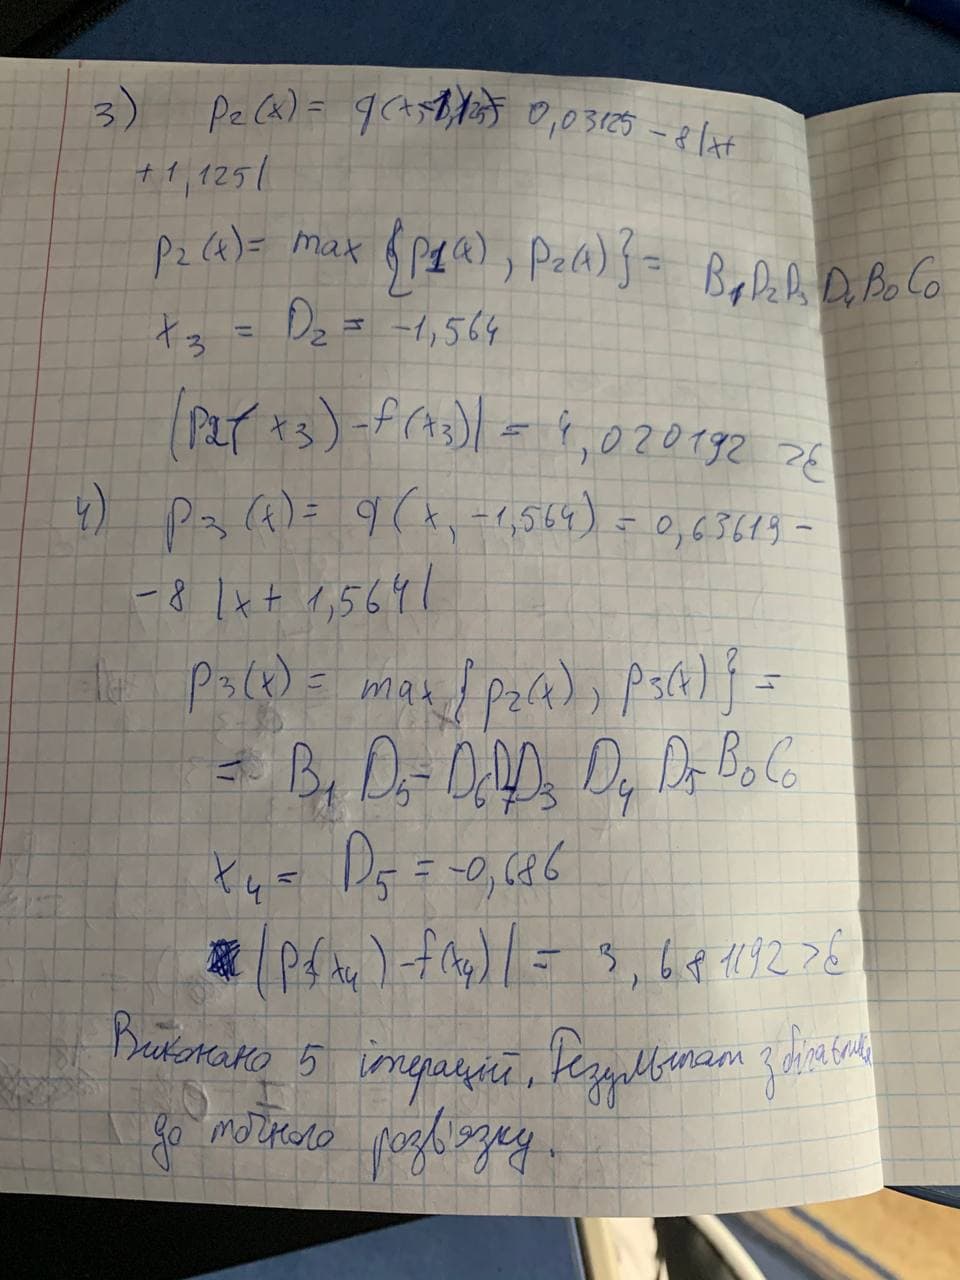 3) p₂(x) = q(x, -1,125) = 0,03125 - 8|x+
+1,125|
p₂(x) = max {p1(x), p₂(x)} = B₁D₂D₃D₄B₀C₀
x₃ = D₂ = -1,564
|P2(x₃) - f(x₃)| = 4,020192 > ε
4) p₃(x) = q(x, -1,564) = 0,63619 -
-8 |x + 1,564|
p₃(x) = max {p₂(x), p₃(x)} =
= B₁ D₅ - D₆D₇D₃ D₄ D₅ B₀C₀
x₄ = D₅ = -0,686
|P3(x₄) - f(x₄)| = 3,681192 > ε
Виконано 5 ітерацій. Результат збігається
до точного розв'язку.